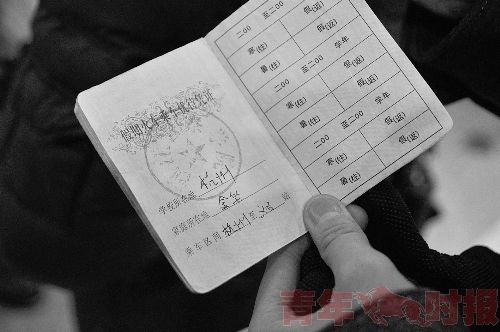 假期火车乘车优惠证
学校所在站 杭州
家庭所在站 金华
乘车区间 杭州 至 义乌 站
二00 至二00
寒(往) 假(返)
暑(往) 假(返)
二00 至二00 学年
寒(往) 假(返)
暑(往) 假(返)
二00 至二00 学年
寒(往) 假(返)
暑(往) 假(返)
青年时报